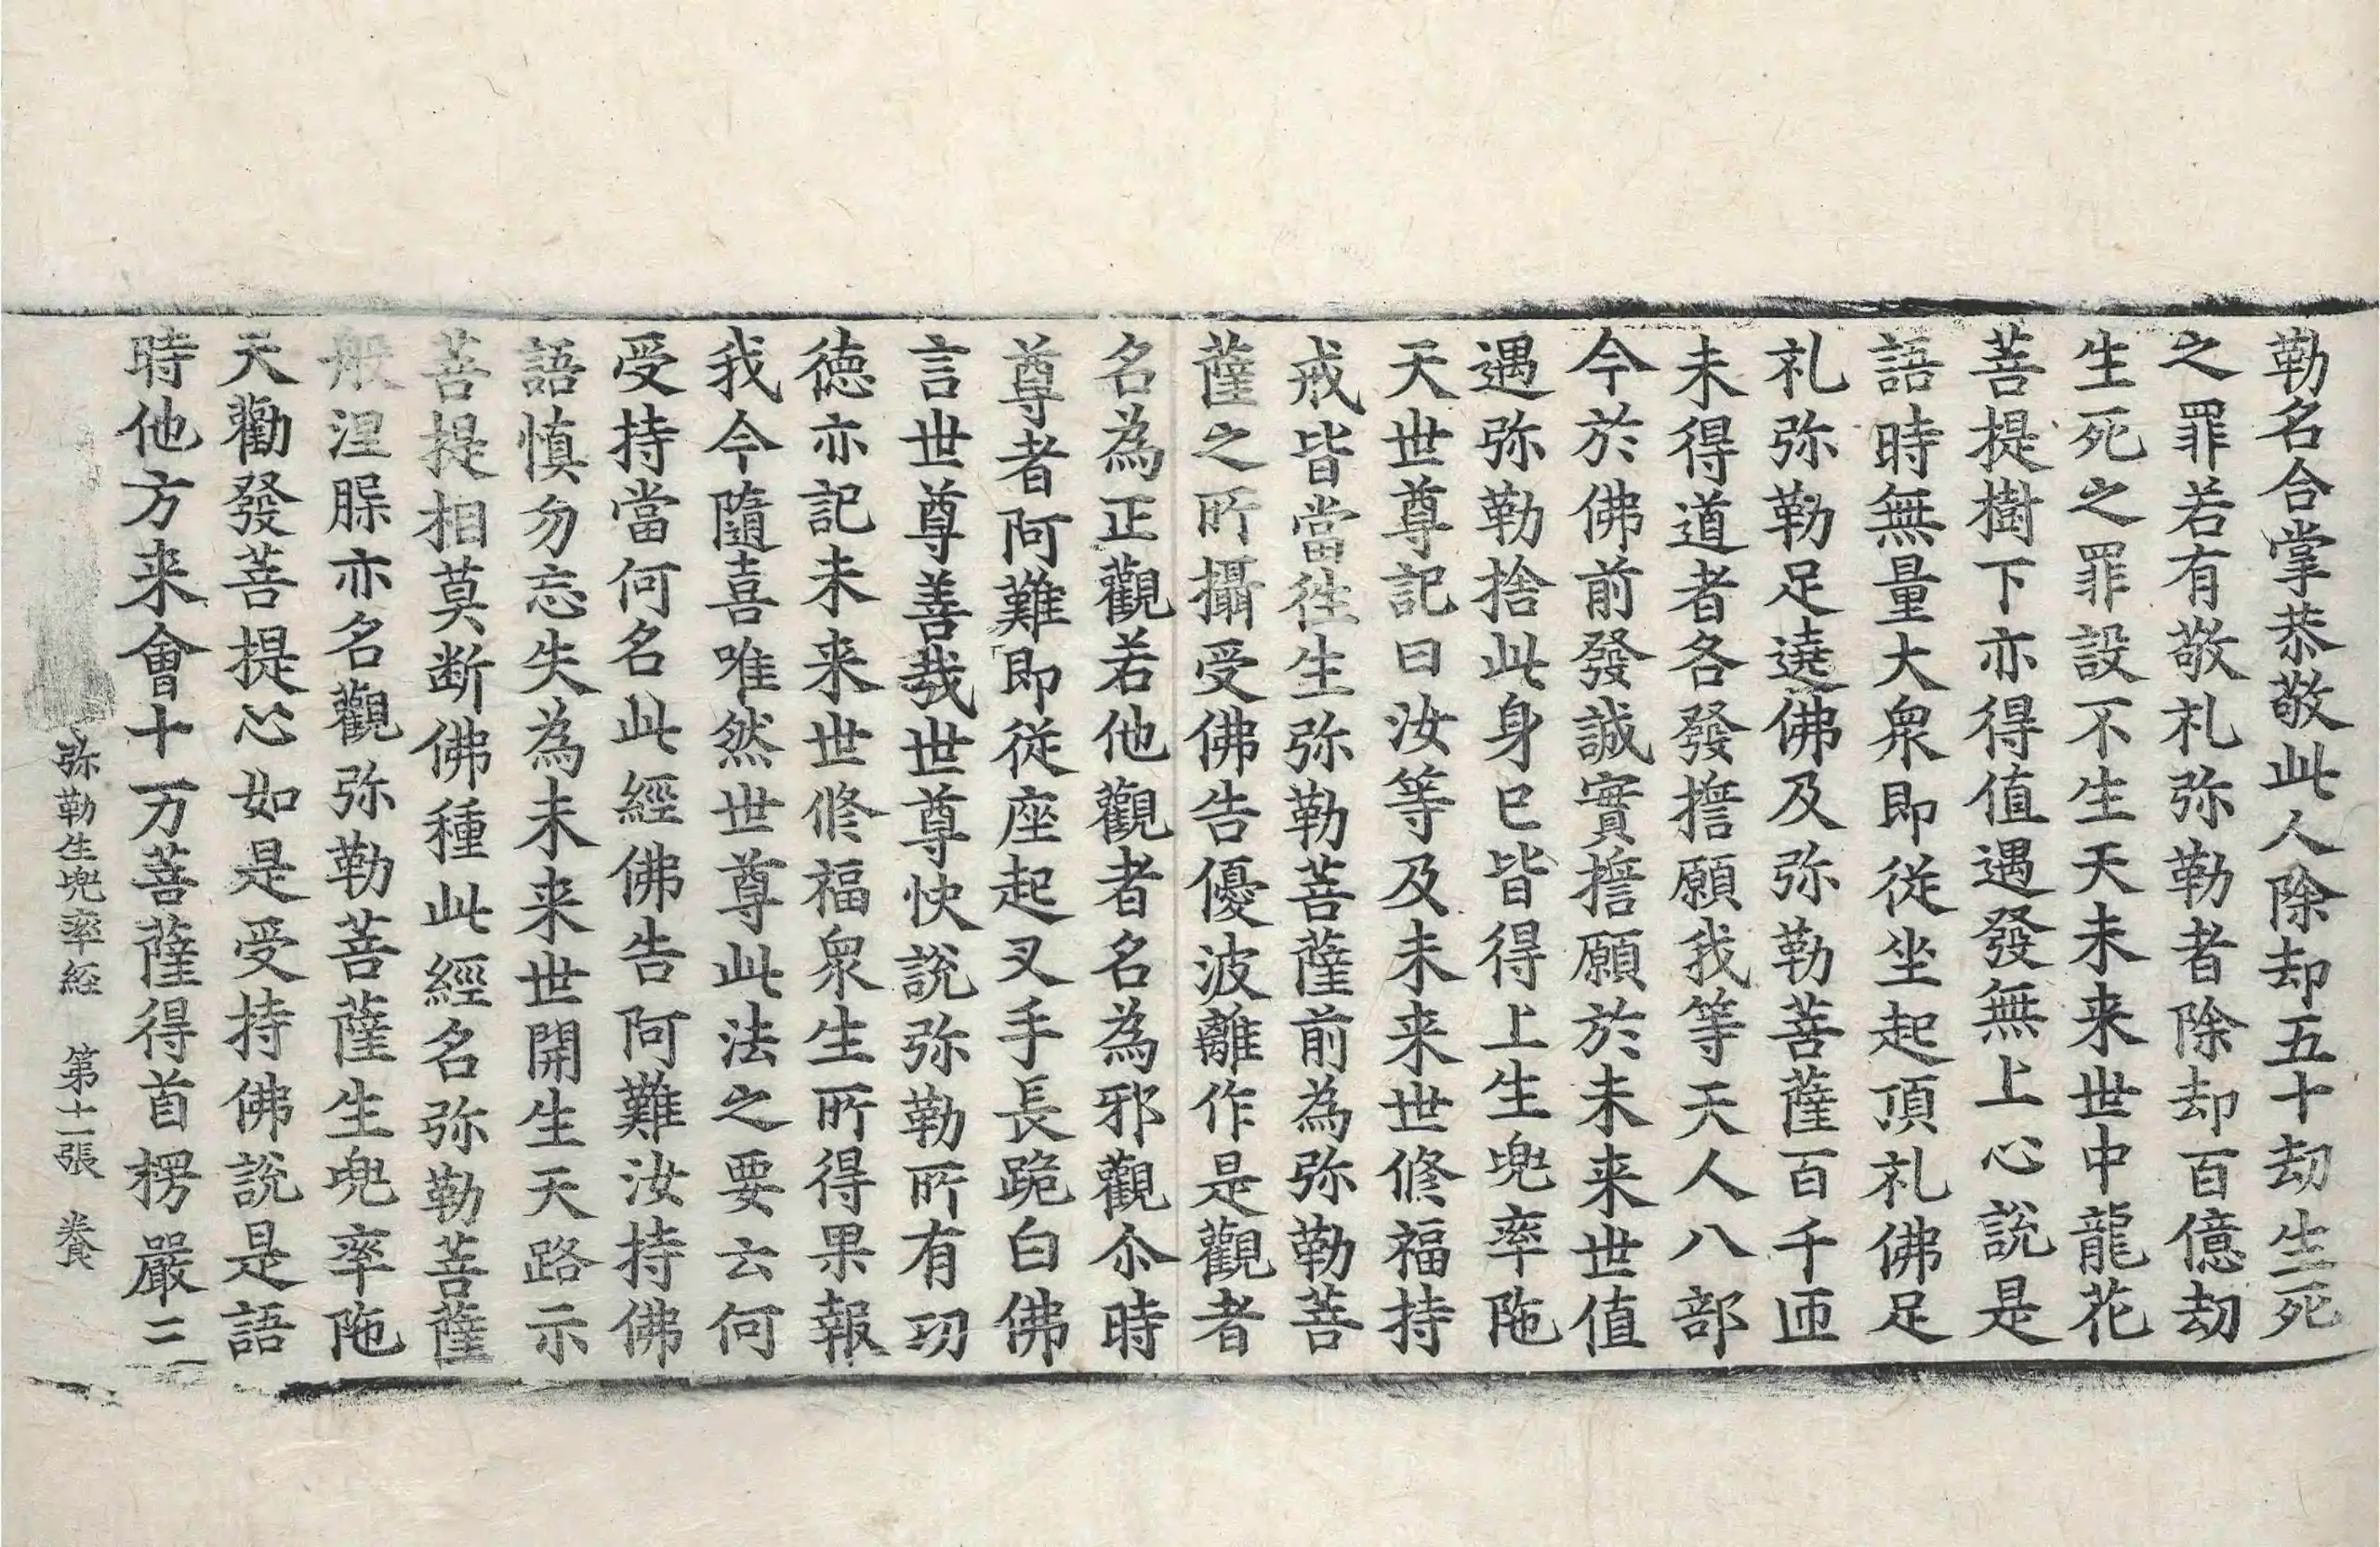 勒名合掌恭敬此人除却五十劫生死
之罪若有敬礼弥勒者除却百億劫
生死之罪設不生天未来世中龍花
菩提樹下亦得值遇發無上心說是
語時無量大衆即従坐起頂礼佛足
礼弥勒足遶佛及弥勒菩薩百千迊
未得道者各發擔願我等天人八部
今於佛前發誠實擔願於未来世值
遇弥勒捨此身已皆得上生兜率陁
天世尊記曰汝等及未来世修福持
戒皆當徃生弥勒菩薩前為弥勒菩
薩之所攝受佛告優波離作是觀者
名為正觀若他觀者名為邪觀尒時
尊者阿難即従座起叉手長跪白佛
言世尊善哉世尊快說弥勒所有㓛
徳亦記未来世修福衆生所得果報
我今隨喜唯然世尊此法之要云何
受持當何名此經佛告阿難汝持佛
語慎勿忘失為未来世開生天路示
菩提相莫断佛種此經名弥勒菩薩
般涅牃亦名觀弥勒菩薩生兜率陁
天勸發菩提心如是受持佛說是語
時他方来會十万菩薩得首楞嚴三
弥勒生兜率経 第十二張 養